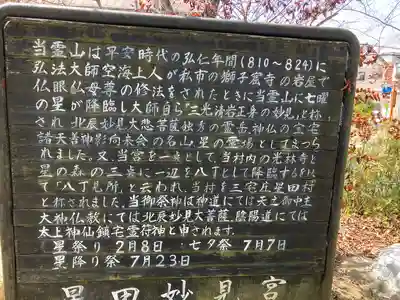 当霊山は平安時代の弘仁年間(810〜824)に
弘法大師空海上人が私市の獅子窟寺の岩屋で
仏眼仏母尊の修法をなされたときに当霊山に七曜
の星が降臨し大師自ら"三光清岩正身の妙見"と称
され 北辰妙見大悲菩薩独秀の霊岳、神仏の宝宅
諸天善神影向来会の名山、星の霊場としてまつら
れました。又、当宮を一点として、当村内の光林寺と
星の森の三点に一辺を八丁として降臨する
「八丁見所」と云われ、当村を三宅庄星田村
と称されました。当御祭神は神道にては天之御中主
大神仏教にては北辰妙見大菩薩、陰陽道にては
太上神仙鎮宅霊符神と申されます。
星祭り 2月8日 七夕祭 7月7日
星降り祭 7月23日
星田妙見宮